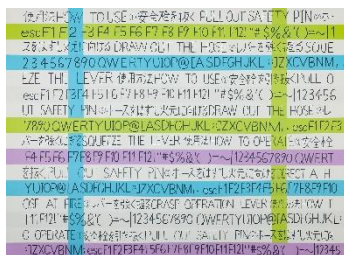 使用方法HOW TO USE⇒安全栓を抜く PULL OUT SAFETY PIN⇒ホー
escF1F2F3F4F5F6F7F8F9F10F11F12!"#$%&'()=~|1
ズをはずし火元に向ける DRAW OUT THE HOSE⇒レバーを強く握る SQUE
234567890QWERTYUIOP@[ASDFGHJKL:]ZXCVBNM
EZE THE LEVER 使用方法HOW TO USE⇒安全栓を抜く PULL O
escF1F2F3F4F5F6F7F8F9F10F11F12!"#$%&'()=~|123456
UT SAFETY PIN⇒ホースをはずし火元に向ける DRAW OUT THE HOSE⇒レ
7890QWERTYUIOP@[ASDFGHJKL:]ZXCVBNM, escF1F2F3
バーを強く握る SQUEEZE THE LEVER 使用方法HOW TO OPERATE⇒安全栓
F4F5F6F7F8F9F10F11F12!"#$%&'()=~|1234567890QWERT
を抜く PULL OUT SAFETY PIN⇒ホースをはずし火元に向ける DIRECT A H
YUIOP@[ASDFGHJKL:]ZXCVBNM, escF1F2F3F4F5F6F7F8F9F10
OSE AT FIRE⇒レバーを強く握る GRASP OPERATION LEVER 使用方法HOW T
F11F12!"#$%&'()=~|1234567890QWERTYUIOP@[ASDFGHJKL:
O OPERATE⇒安全栓を抜く PULL OUT SAFETY PIN⇒ホースをはずし火元
]ZXCVBNM, escF1F2F3F4F5F6F7F8F9F10F11F12!"#$%&'()=~|